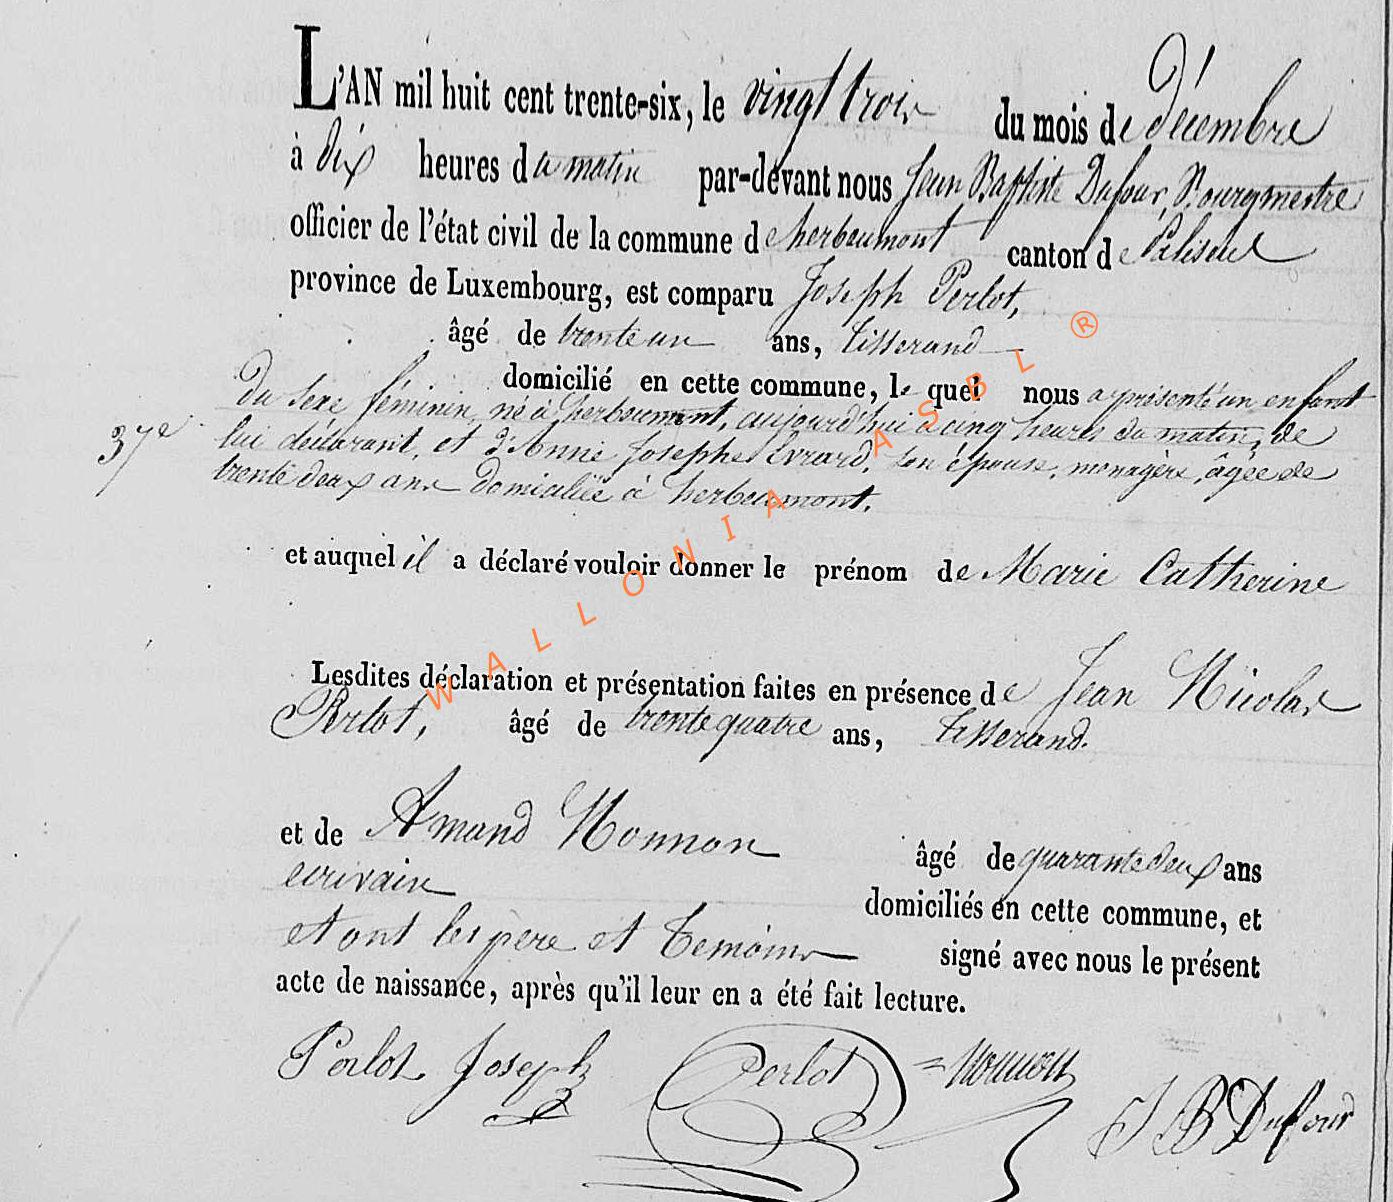 L'AN mil huit cent trente-six, le vingt trois du mois de décembre
à dix heures du matin par-devant nous Jean Baptiste Dufour, Bourgmestre
officier de l'état civil de la commune de herbeumont canton de Paliseul
province de Luxembourg, est comparu Joseph Perlot,
âgé de trente un ans, tisserand
domicilié en cette commune, le quel nous a présenté un enfant
du sexe féminin, né à herbeumont, aujourd'hui à cinq heures du matin, de
37e lui déclarant, et d'Anne Josephe Evrard, son épouse, menagère, âgée de
trente deux ans domiciliée à herbeumont.
et auquel il a déclaré vouloir donner le prénom de Marie Catherine
Lesdites déclaration et présentation faites en présence de Jean Nicolas
Perlot, âgé de trente quatre ans, tisserand.
et de Amand Monnon âgé de quarante deux ans
ecrivain domiciliés en cette commune, et
et ont les père et temoins signé avec nous le présent
acte de naissance, après qu'il leur en a été fait lecture.
Perlot Joseph Perlot Monnon J B Dufour
WALLONIA ASBL ®